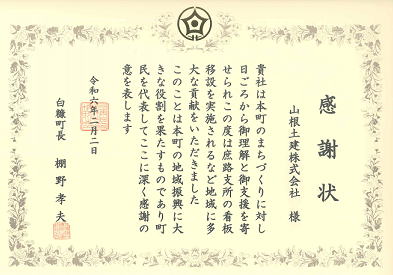 感謝状
山根土建株式会社 様
貴社は本町のまちづくりに対し
日ごろから御理解と御支援を寄
せられこの度は庶路支所の看板
移設を実施されるなど地域に多
大な貢献をいただきました
このことは本町の地域振興に大
きな役割を果たすものであり町
民を代表してここに深く感謝の
意を表します
令和六年二月二日
白糠町長 棚野孝夫